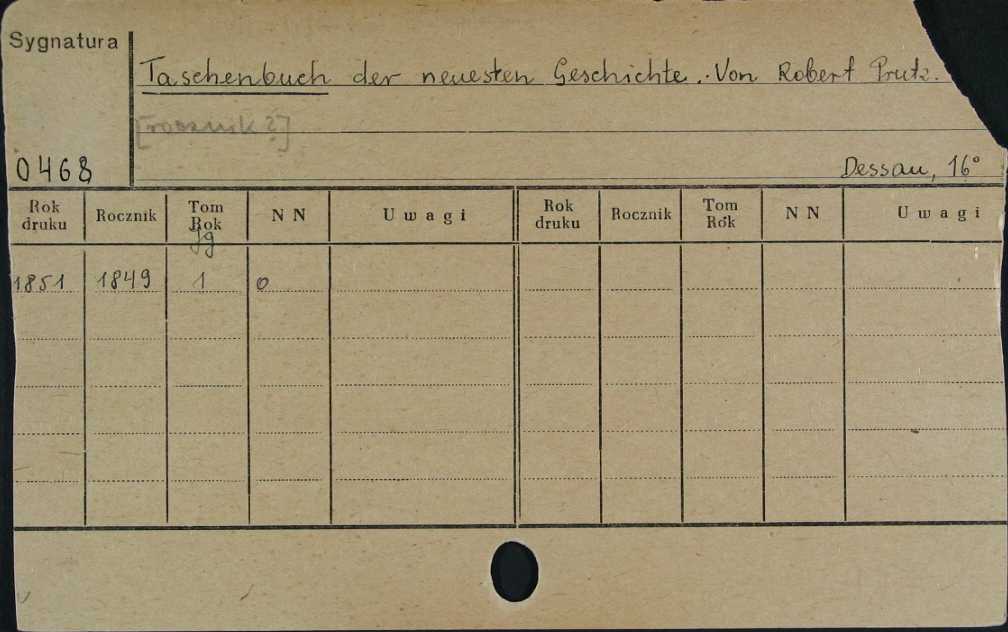 Sygnatura
Taschenbuch der neuesten Geschichte. Von Robert Prutz.
[rocznik?]
0468
Dessau, 16°
Rok druku Rocznik Tom Rok NN Uwagi Rok druku Rocznik Tom Rok NN Uwagi
Jg
1851 1849 1 0